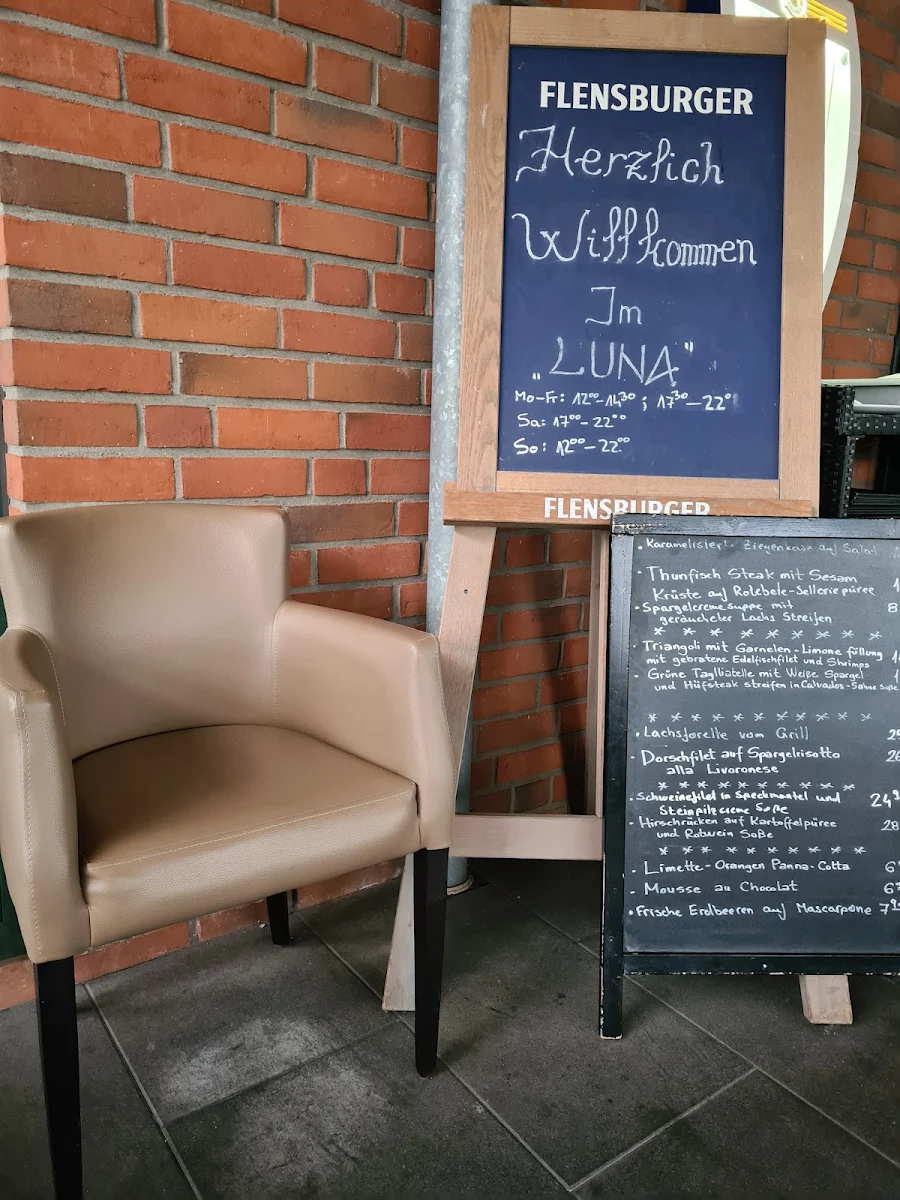 FLENSBURGER
Herzlich
Willkommen
Im
„LUNA"
Mo-Fr: 12⁰⁰-14³⁰ ; 17³⁰-22⁰
Sa: 17⁰⁰-22⁰⁰
So: 12⁰⁰-22⁰⁰
FLENSBURGER
• Ziegenkäse auf Salat
• Thunfisch Steak mit Sesam 1
Krüste auf Rotebete-Sellerie püree
• Spargelcremesuppe mit 8
geräucheter Lachs Streifen
* * * * * * * * * *
• Triangoli mit Garnelen-Limone füllung 1
mit gebratene Edelfischfilet und Shrimps
• Grüne Taglliatelle mit Weiße Spargel 1
und Hüfsteak streifen in Calvados-Sahne Soße
* * * * * * * * * *
• Lachsforelle vom Grill 2
• Dorschfilet auf Spargelrisotto 26
alla Livoronese
* * * * * * * * * *
• Schweinefilet in Speckmantel und 24,
Steinpilzcreme Soße
• Hirschrücken auf Kartoffelpüree 28
und Rotwein Soße
* * * * * * * * *
• Limette-Orangen Panna-Cotta 6
• Mousse au Chocolat 6
• Frische Erdbeeren auf Mascarpone 7